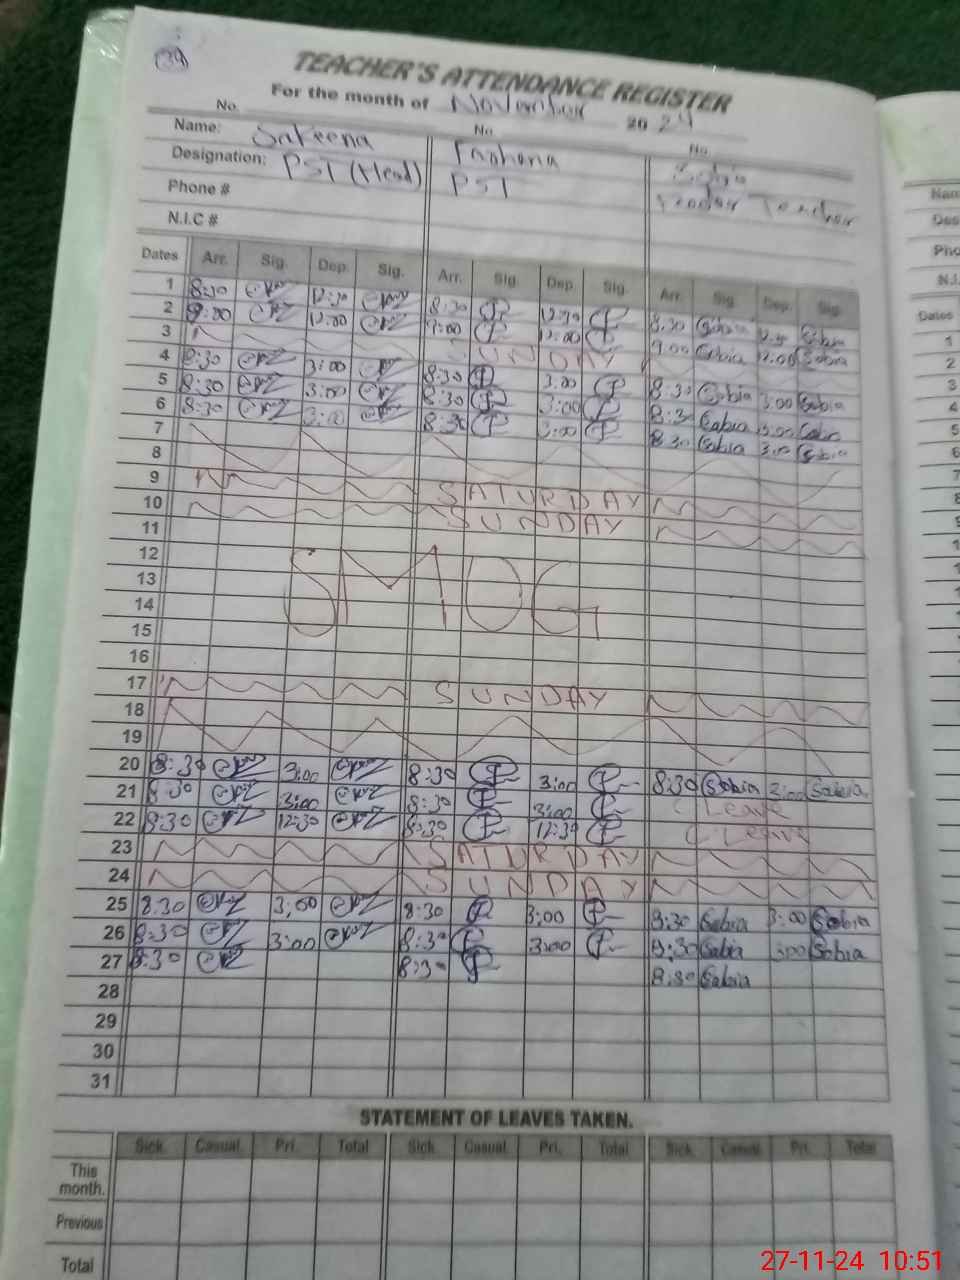 39
TEACHER'S ATTENDANCE REGISTER
For the month of November 2024
No. No. No.
Name: Sakeena Farhana
Designation: PST (Head) PST Teacher
Phone #
N.I.C #
Dates Arr. Sig. Dep. Sig. Arr. Sig. Dep. Sig. Arr. Sig. Dep. Sig.
1 8:30 12:30 8:30 12:30 8.30 Sabia Sabia
2 9:00 12:00 9:00 12:00 9.00 Sabia 12.00 Sabia
3 SUNDAY
4 8:30 3:00 8:30 3:00 8:30 Sabia 3:00 Sabia
5 8:30 3:00 8:30 3:00 8:3 Sabia 3:00 Sabia
6 8:30 3:00 8:30 3:00 8 30 Sabia 3:0 Sabia
7
8
9 SATURDAY
10 SUNDAY
11
12
SMOG
13
14
15
16
17 SUNDAY
18
19
20 8:30 3:00 8:30 3:00 8:30 Sobia 3:00 Sabia
21 8:30 3:00 8:30 3:00 C Leave
22 8:30 12:30 8:30 12:30 C Leave
23 SATURDAY
24 SUNDAY
25 8.30 3:00 8:30 3:00 8:30 Sabia 3:00 Sobia
26 8:30 3:00 8:30 3:00 8:30 Sabia 3:00 Sobia
27 8:30 8:30 8:30 Sabia
28
29
30
31
STATEMENT OF LEAVES TAKEN.
Sick. Casual. Pri. Total Sick. Casual. Pri. Total Sick. Casual. Pri. Total
This month.
Previous
Total
27-11-24 10:51